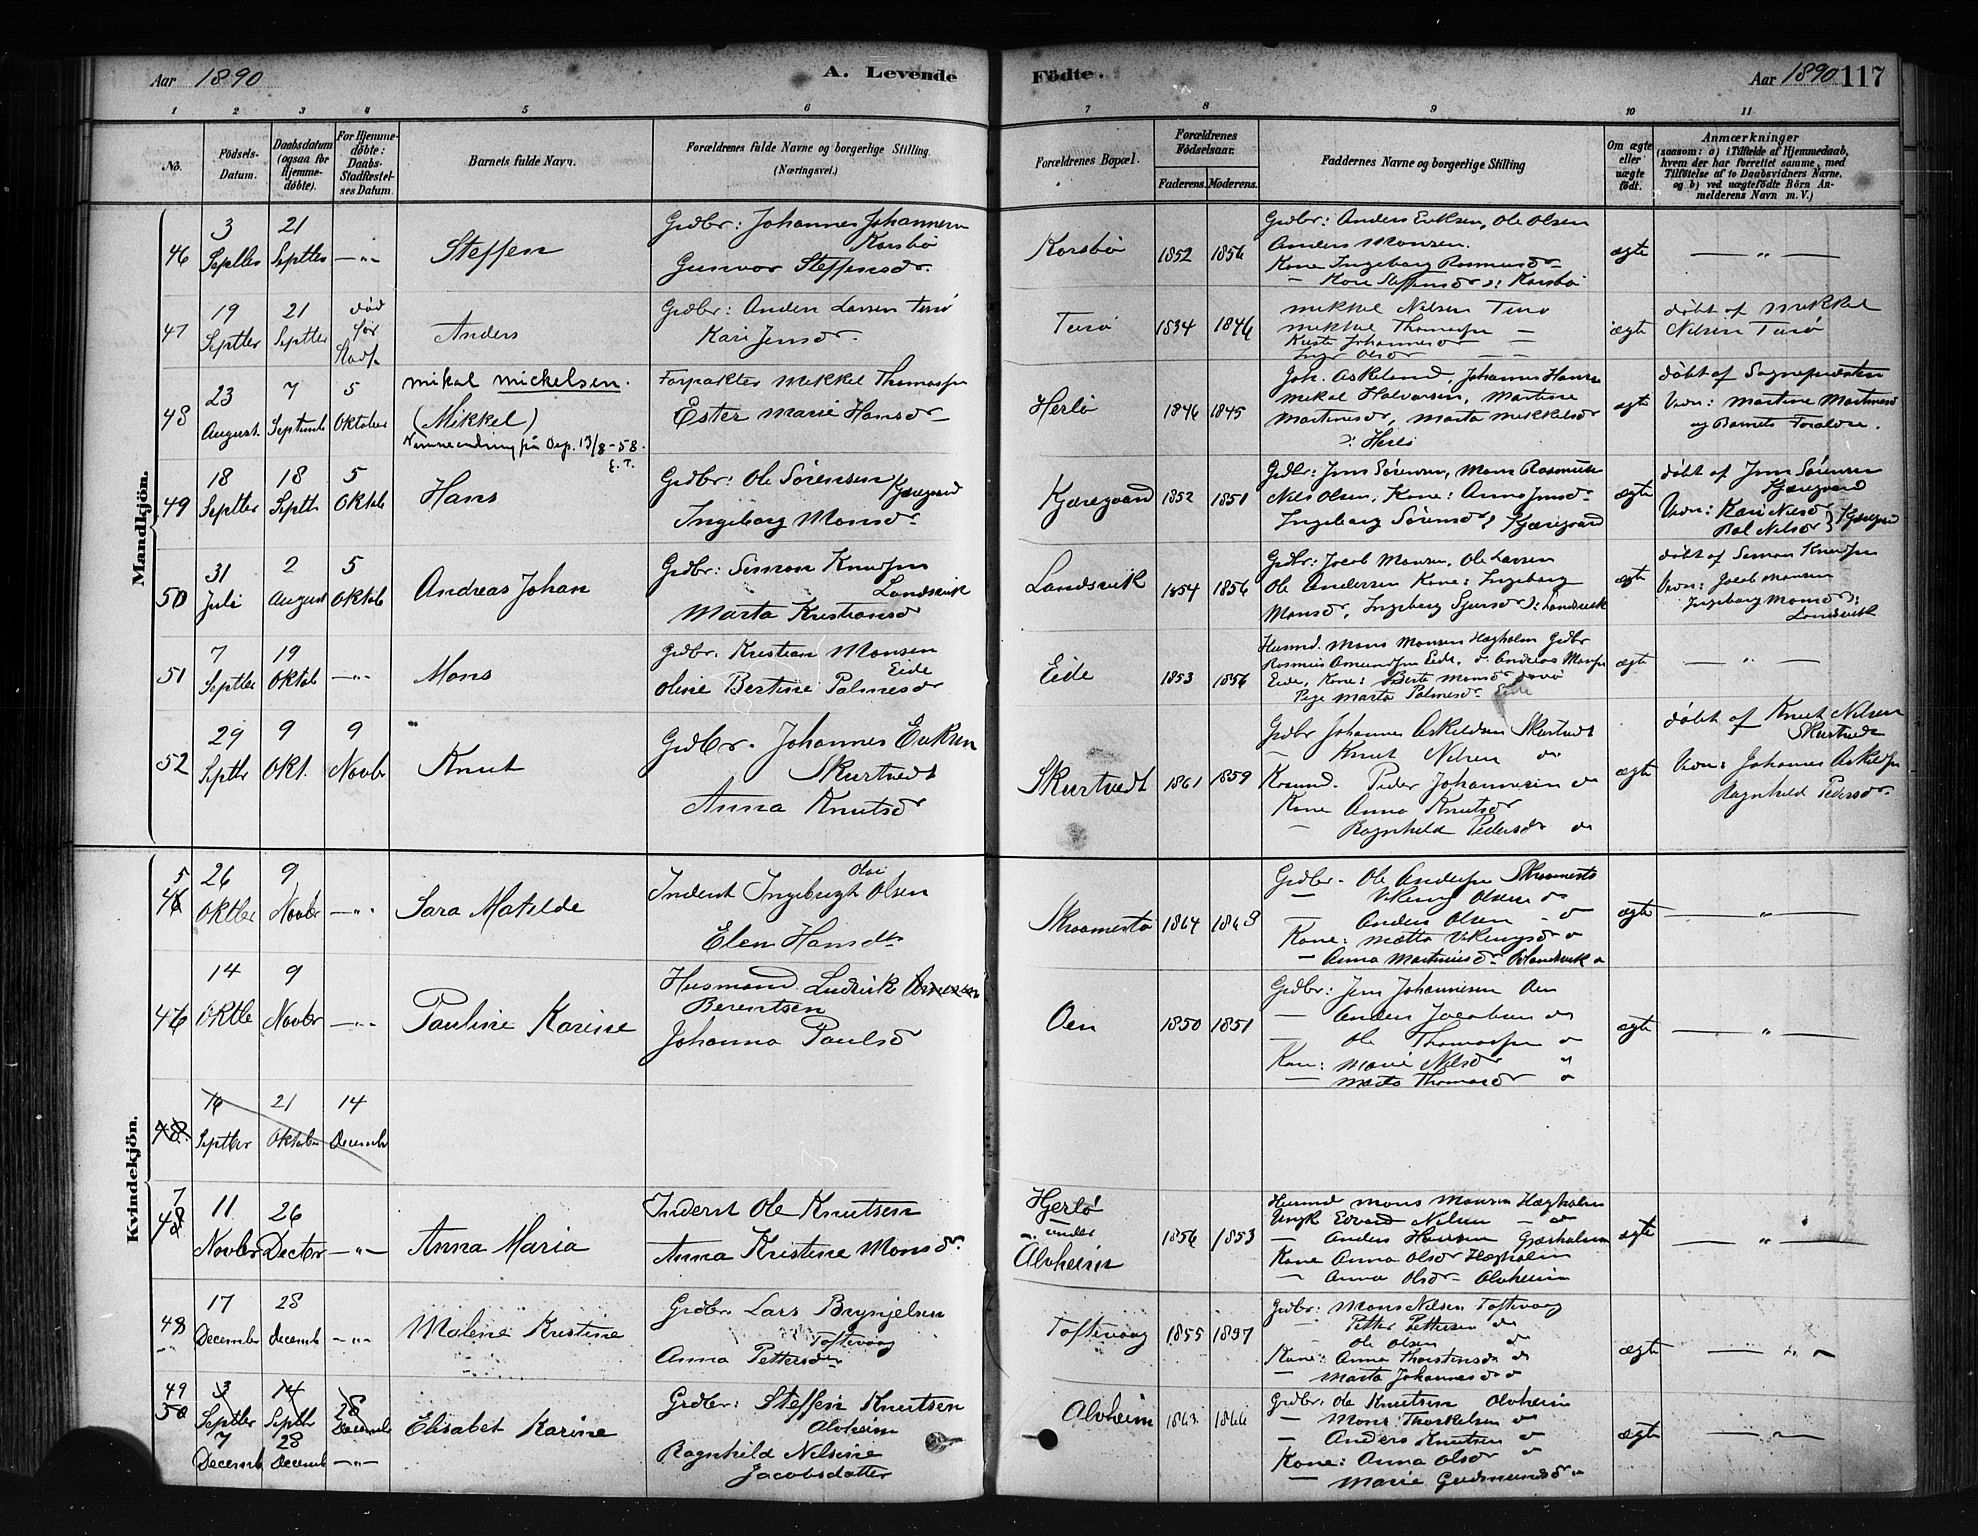 Aar 1890 A. Levende Födte. Aar 1890 117
1 2 3 4 5 6 7 8 9 10 11
No. Födsels-Datum. Daabsdatum (ogsaa for Hjemme-døbte). For Hjemme-døbte: Daabs-Stadfæstel-ses Datum. Barnets fulde Navn. Forældrenes fulde Navne og borgerlige Stilling. (Næringsvei.) Forældrenes Bopæl. Forældrenes Födselsaar. Faderens. Moderens. Faddernes Navne og borgerlige Stilling Om ægte eller uægte født. Anmærkninger
(saasom: a) i Tilfælde af Hjemmedaab, hvem der har forrettet samme, med Tilföielse af to Daabsvidners Navne, og b) ved uægtefödte Börn An-melderens Navn m. V.)
Mandkjön.
46 3 Septbr 21 Septbr —„— Steffen Grdbr: Johannes Johannesen Korsbö
Gunvor Steffensdr. Korsbö 1852 1856 Grdbr: Anders Eriksen, Ole Olsen
Anders Monsen.
Kone Ingeborg Rasmusdr
— Kari Steffensdr): Korsbö ægte — „ —
47 19 Septbr 21 Septbr død før Stadf. Anders Grdbr: Anders Larsen Tersö
Kari Jensdr. Tersö 1834 1846 Mikkel Nilsen Tersö
Mikkel Thomassen —
Johannesdr —
Inger Olsdr — — ægte døbt af Mikkel
Nilsen Tersö
48 23 August. 7 Septembr 5 Oktober Mikal Mickelsen.
(Mikkel)
Navneendring på Dep. 13/8-58.
E.T. Forpakter Mikkel Thomassen
Ester Marie Hansdr — Herlö 1846 1845 Joh. Askeland, Johannes Hansen
Mikal Halvorsen, Martine
Martinesdr, Marta Mikkelsdr
): Herlö ægte døbt af Sognepræsten
Vidn: Martine Martinesdr
og Barnets Forældre.
49 18 Septbr 18 Septbr 5 Oktob Hans Grdbr: Ole Sörensen Kjæregaard
Ingeborg Monsdr Kjæregaard 1852 1851 Grdbr: Jens Sörensen, Mons Rasmussen
Nils Olsen, Kone: Anna Jensdr
Ingeborg Sörensdr, Kjæregaard ægte døbt af Jens Sörensen
Kjæregaard
Vidn: Kari Nilsdr
Nilsdr } Kjæregaard
50 31 Juli 2 August 5 Oktob Andreas Johan Grdbr: Simon Knudsen
Landsvik
Marta Kristiansdr Landsvik 1854 1856 Grdbr: Jacob Monsen, Ole Larsen
Ole Andersen Kone: Ingeborg
Monsdr, Ingeborg Sjursdr): Landsvik ægte døbt af Simon Knudsen
Vidn: Jacob Monsen
Ingeborg Monsdr):
Landsvik
51 7 Septbr 19 Oktob —„— Mons Grdbr. Kristian Monsen
Eide
Oline Bertine Palmesdr Eide 1853 1856 Husmd. Mons Monsen Hægholm Grdbr
Rasmus Amundsen Eide, Andreas Monsen
Eide, Kone: Berte Monsdr
Pige Marta Palmesdr. Eide ægte — „ —
52 29 Septbr 9 Okt. 9 Novbr Knut Grdbr. Johannes Eriksen
Skurtvedt
Anna Knutsdr Skurtvedt 1861 1859 Grdbr Johannes Askeldsen Skurtvedt
— Knut Nilsen do
Peder Johannesen do
Kone Anna Knutsdr
— Ragnhild Pedersdr do ægte døbt af Knut Nilsen
Skurtvedt
Vidn: Johannes Askeldsen
Ragnhild Pedersdr.
Kvindekjön.
45 26 Oktbr 9 Novbr —„— Sara Matilde Inderst Ingebrigt Olsen
Elen Hansdtr Skraamestö 1864 1863 Grdbr. Ole Andersen Skraamestö
— Viking Olsen do
— Anders Olsen — do
Kone: Mætta Vikingsdr do
— Anna Martinusdr ægte — „ —
46 14 Oktbr 9 Novbr —„— Pauline Karine Husmand Ludvik
Berentsen
Johanna Paulsdr Oen 1850 1851 Grdbr: Jens Johannesen Oen
— Anders Jacobsen do
— Ole Thomassen do
Kone: Marie Nilsdr „
— Marta Thomasdr „ ægte — „ —
48. 16 Septbr 21 Oktober 14 Decembr
47 11 Novbr 26 Decbr —„— Anna Maria Inderst Ole Knutsen
Anna Kristine Monsdr. Hjerlö
under
Alvheim 1856 1853 Husmd Mons Monsen Hægholm
Ungk Edvard Nilsen — do
— Anders Hansen
Kone Anna Olsdr Hægholm
— Anna Olsdr Alvheim ægte — „ —
48 17 December 28 Decemb —„— Malene Kristine Grdbr. Lars Brynjelsen
Toftevaag
Anna Pettersdr Toftevaag 1855 1857 Grdbr: Mons Nilsen Toftevaag
— Petter Pettersen do
— Ole Olsen do
Kone: Anna Thorstensdr do
— Marta Johannesdr do ægte — „ —
49
50 3 Septbr 14 Septbr 28 Decembr
7 Decemb 28 Decemb —„— Elisabet Karine Grdbr: Steffen Knutsen
Alvheim
Ragnhild Nilsine
Jacobsdatter Alvheim 1863 1866 Grdbr. Ole Knutsen Alvheim
— Mons Thorkelsen do
— Anders Knutsen do
Kone: Anna Olsdr do
— Marie Gudmundsdr „ ægte — „ —